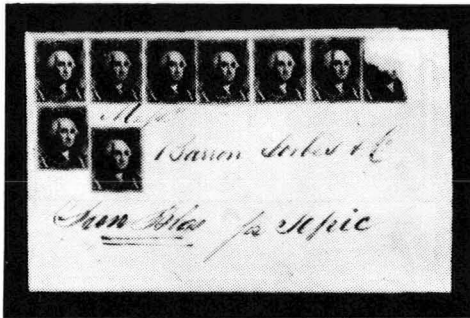 Messrs
Barron Forbes & Co
San Blas for Tepic